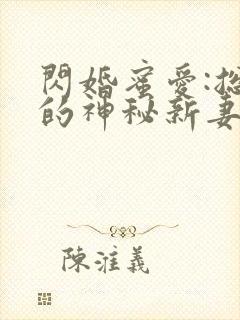 閃婚蜜愛:總
的神秘新妻
陳淮義